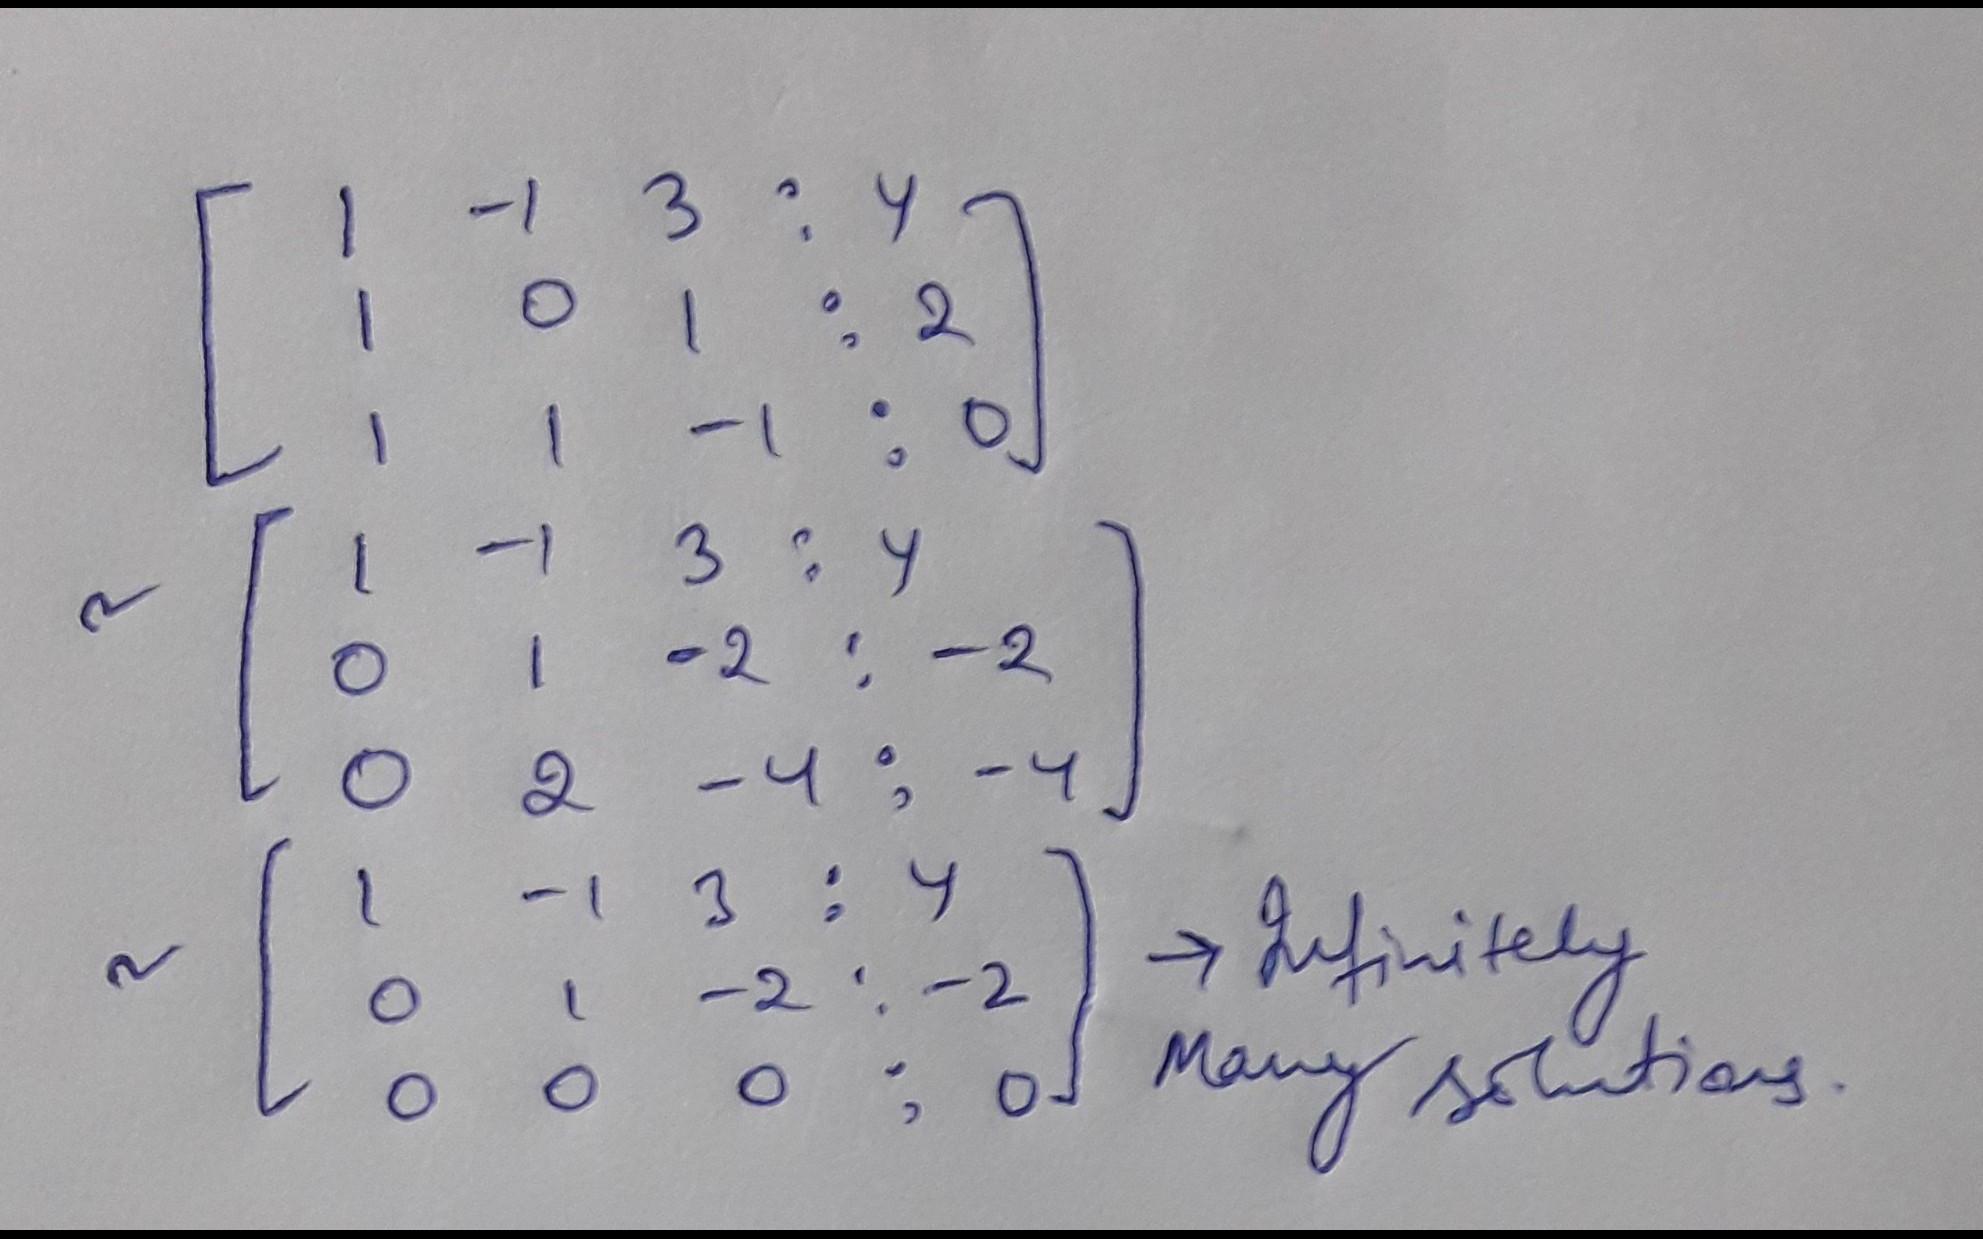 1 -1 3 : 4
1 0 1 : 2
1 1 -1 : 0
~ 1 -1 3 : 4
0 1 -2 : -2
0 2 -4 : -4
~ 1 -1 3 : 4
0 1 -2 : -2
0 0 0 : 0
→ Infinitely
Many solutions.